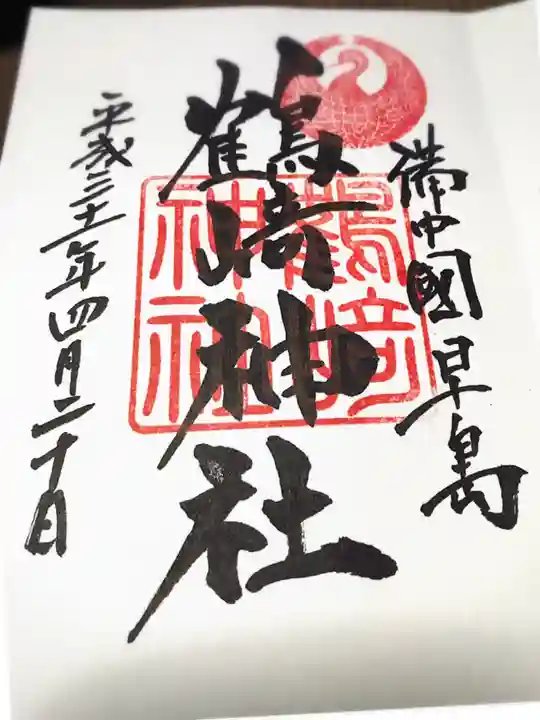 備中國早島
鶴崎神社
鶴崎
神社
平成三十一年四月二十日